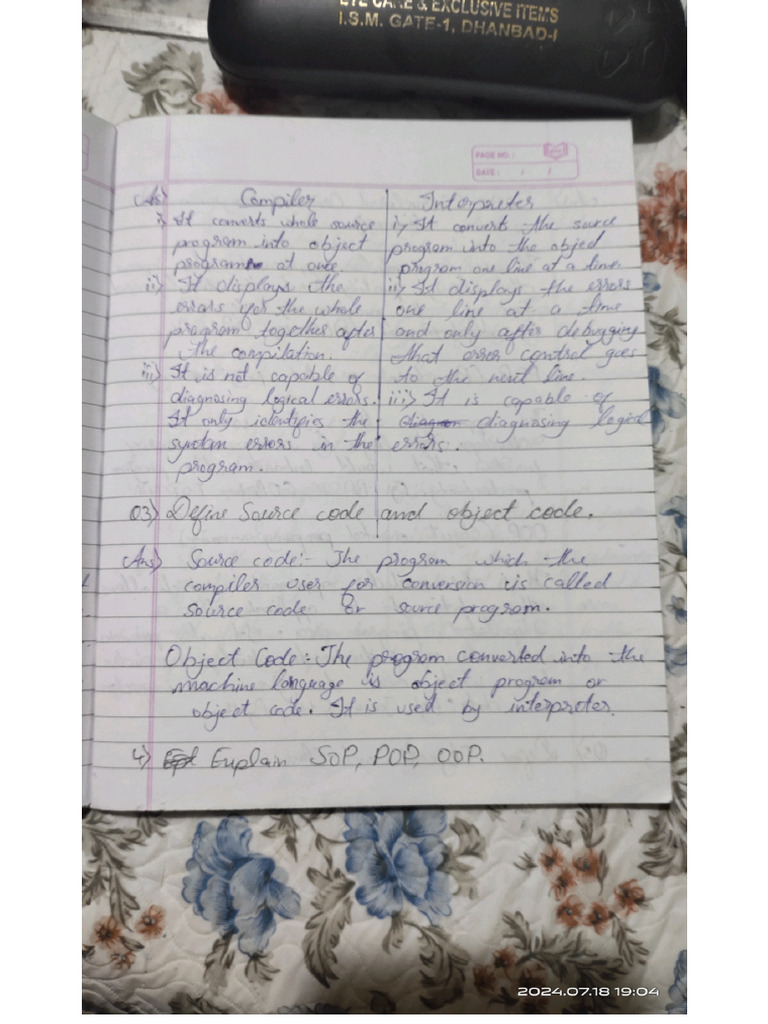 EYE CARE & EXCLUSIVE ITEMS
I.S.M. GATE-1, DHANBAD-1
PAGE NO.:
DATE: / /
Ans) Compiler
i) It converts whole source
program into object
program at once.
ii) It displays the
errors for the whole
program together after
the compilation.
iii) It is not capable of
diagnosing logical errors.
It only identifies the
syntax errors in the
program.
Interpreter
i) It converts the source
program into the object
program one line at a time.
ii) It displays the errors
one line at a time
and only after debugging
that error control goes
to the next line.
iii) It is capable of
diagnosing logical
errors.
Q3) Define Source code and object code.
Ans) Source code:- The program which the
compiler uses for conversion is called
source code or source program.
Object Code:- The program converted into the
machine language is object program or
object code. It is used by interpreter.
4) Explain SOP, POP, OOP.
2024.07.18 19:04